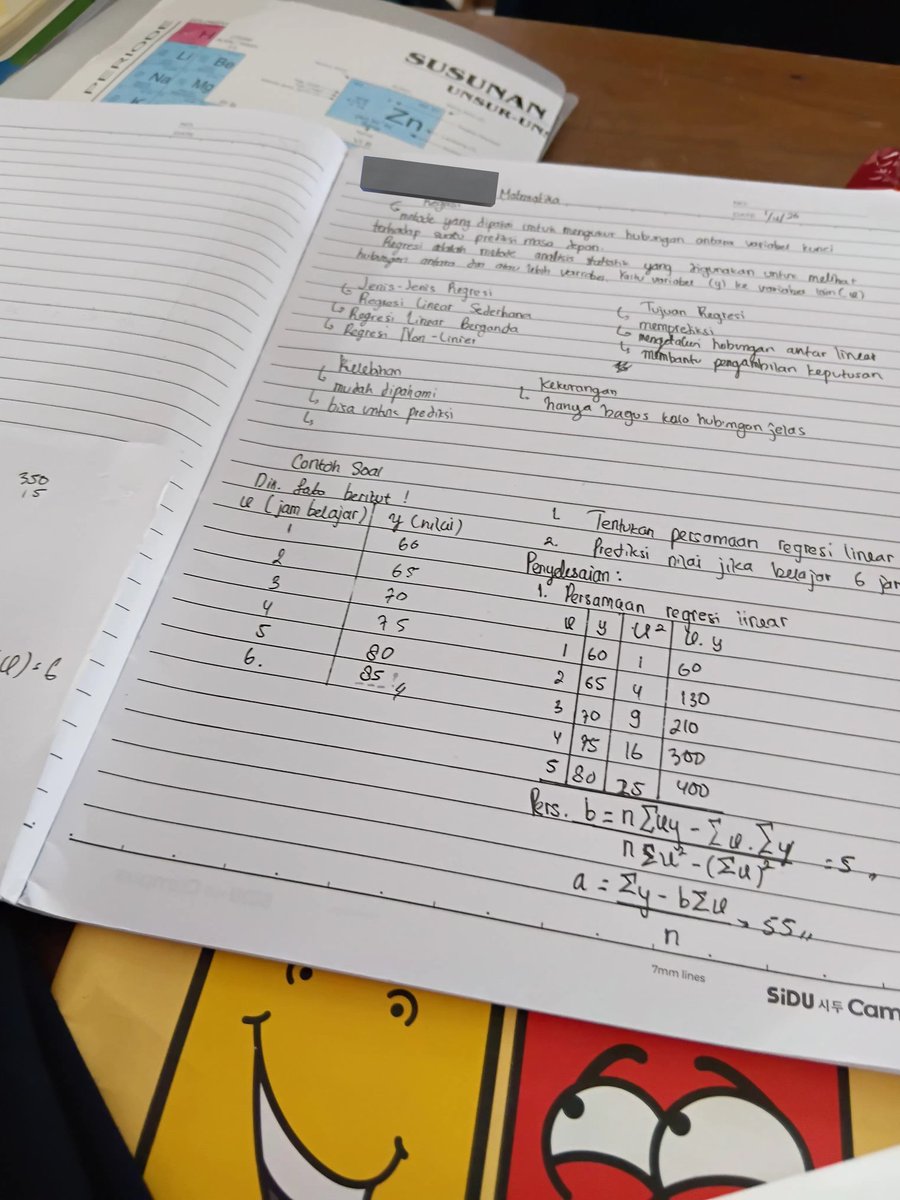 PERIODE
H
Li Be
Na Mg
SUSUNAN
UNSUR-UN
Zn
Matematika
Regresi
↳ metode yang dipakai untuk mengukur hubungan antara variabel kunci
terhadap suatu prediksi masa depan.
Regresi adalah metode analisis statistik yang digunakan untuk melihat
hubungan antara dua atau lebih variabel. variabel (y) ke variabel lain (x)
Jenis-Jenis Regresi
↳ Regresi Linear Sederhana
↳ Regresi Linear Berganda
↳ Regresi Non-Linier
Tujuan Regresi
↳ memprediksi
↳ mengetahui hubungan antar linear
↳ membantu pengambilan keputusan
Kelebihan
↳ mudah dipahami
↳ bisa untuk prediksi
↳
Kekurangan
↳ hanya bagus kalo hubungan jelas
350
15
x) = 6
Contoh Soal
berikut !
x (jam belajar) y (nilai)
1 60
2 65
3 70
4 75
5 80
6. 85
1. Tentukan persamaan regresi linear
2. Prediksi nilai jika belajar 6 jam
Penyelesaian :
1. Persamaan regresi linear
x y x² x.y
1 60 1 60
2 65 4 130
3 70 9 210
4 75 16 300
5 80 25 400
Pers. b = n Σxy - Σx . Σy / n Σx² - (Σx)² = 5
a = Σy - bΣx / n = 55
7mm lines
SiDU 시두 Cam